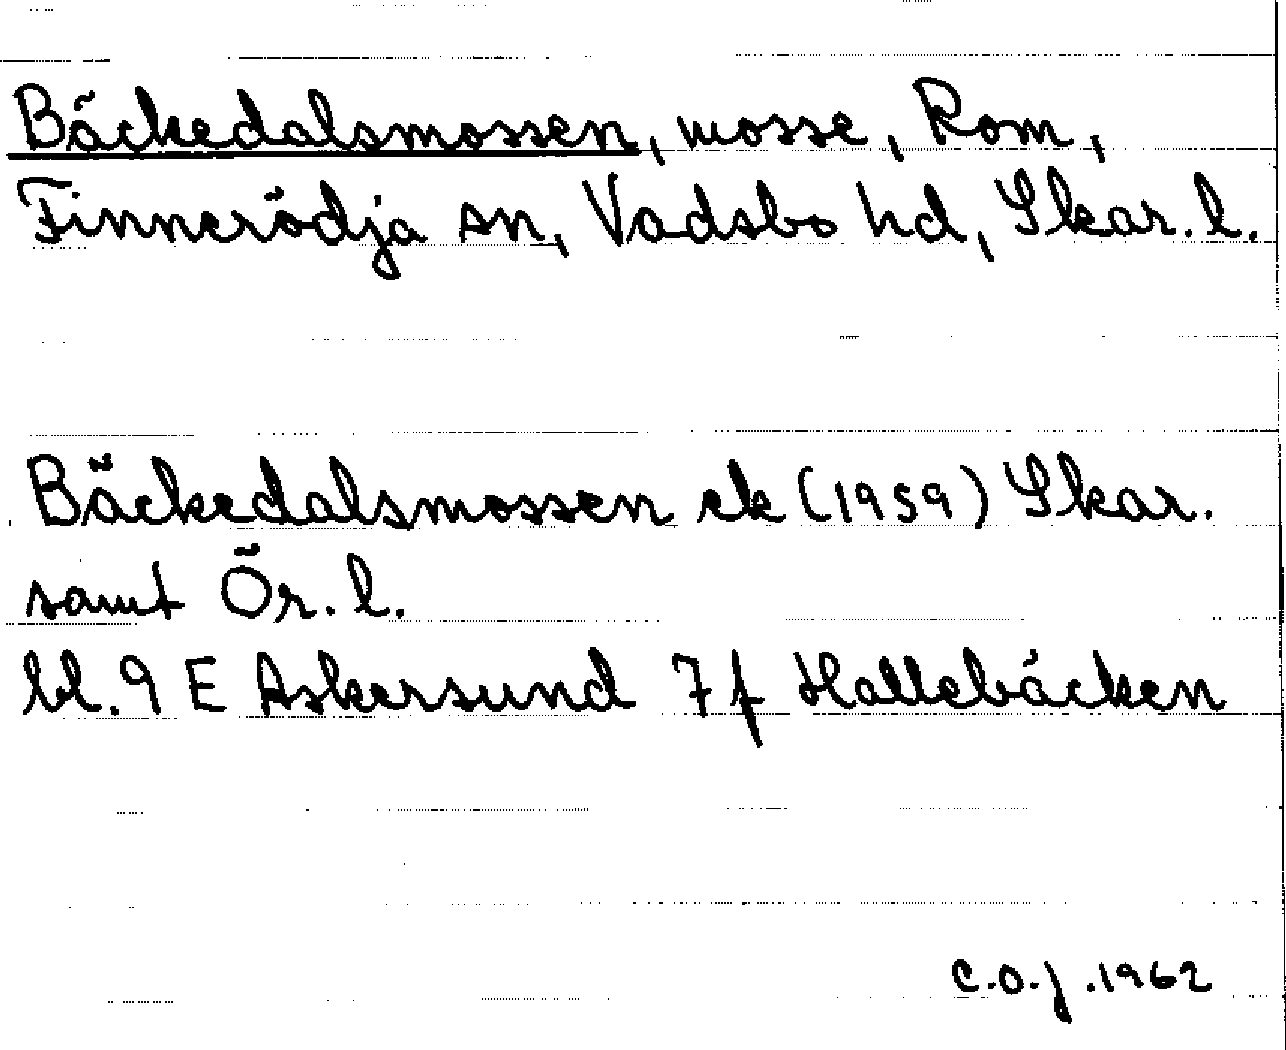 Bäckedalsmossen, mosse, Rom,
Finnerödja sn, Vadsbo hd, Skar. l.
Bäckedalsmossen ek (1959) Skar.
samt Ör. l.
bl. 9 E Askersund 7 f Hallebäcken
C.O.J. 1962